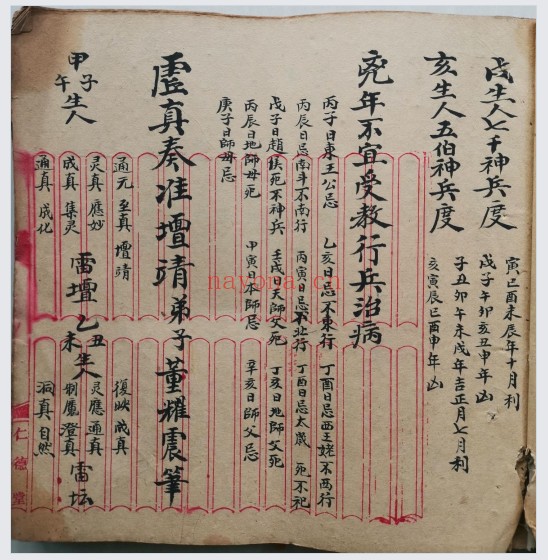 戌生人七千神兵度
寅巳酉未辰年十月利
戊子午卯亥丑申年凶
亥生人五伯神兵度
子丑卯午未戌年吉正月七月利
亥寅辰巳酉申年凶
凶年不宜受教行兵治病
丙子日東王公忌 乙亥日忌不東行 丁酉日忌西王姥不西行
丙辰日忌南斗不南行 丙寅日忌不北行 丁酉日忌太歲死不祀
戊子日趙侯死不神兵 壬戌日天師父死 丁亥日地師父死
丙辰日地師母死 甲寅日本師忌 辛亥日師父忌
庚子日師母忌
虛真奏准壇靖弟子董耀震筆
甲子午生人
通元 至真 壇靖
灵真 應妙
成真 集灵
通真 成化
雷壇
乙丑未生人
復映 成真
灵應 通真
制魔 澄真
洞真 自然
雷坛
仁德堂
nayona.cn